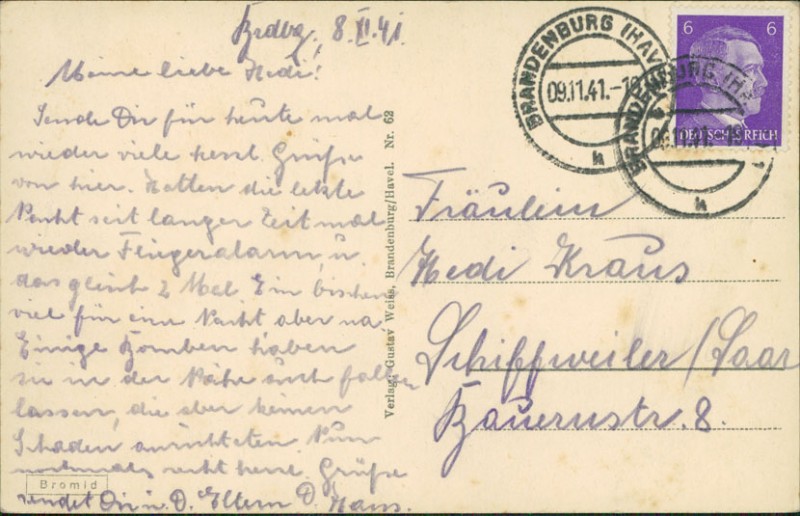 Brdbg, 8.XI.41.
Meine liebe Hedi!
Sende Dir für heute mal
wieder viele herzl. Grüße
von hier. Hatten die letzte
Nacht seit langer Zeit mal
wieder Fliegeralarm, u.
das gleich 2 Mal. Ein bischen
viel für eine Nacht aber na
Einige Bomben haben
sie in der Nähe auch fallen
lassen, die aber keinen
Schaden anrichteten. Nun
nochmals recht herzl. Grüße
sendet Dir u. D. Eltern D. Hans.
Bromid
Verlag: Gustav Weiss, Brandenburg/Havel. Nr. 62
BRANDENBURG (HAVEL)
09.11.41.-18
h
BRANDENBURG (HAVEL)
09.11.41.-18
h
6 6
DEUTSCHES REICH
Fräulein
Hedi Kraus
Schiffweiler/Saar
Bauernstr. 8.